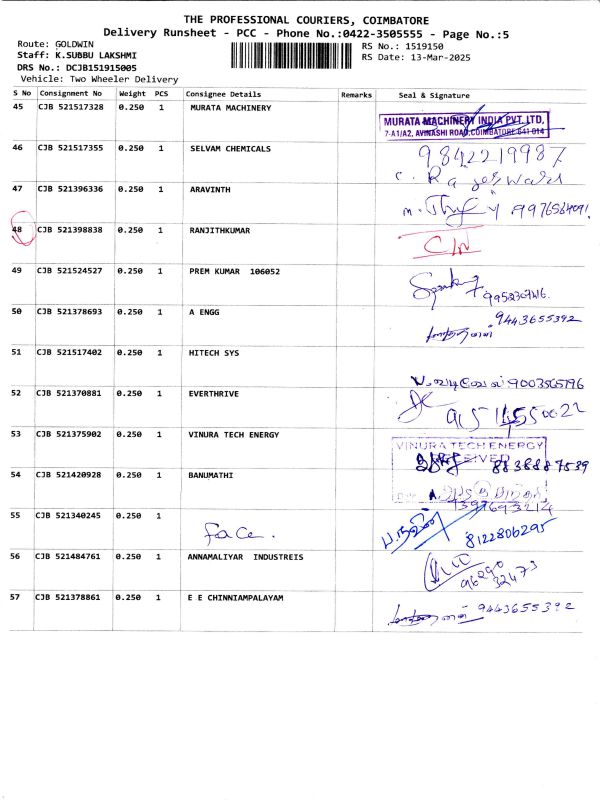 THE PROFESSIONAL COURIERS, COIMBATORE
Delivery Runsheet - PCC - Phone No.:0422-3505555 - Page No.:5
Route: GOLDWIN
RS No.: 1519150
Staff: K.SUBBU LAKSHMI
RS Date: 13-Mar-2025
DRS No.: DCJB151915005
Vehicle: Two Wheeler Delivery
S No Consignment No Weight PCS Consignee Details Remarks Seal & Signature
45 CJB 521517328 0.250 1 MURATA MACHINERY
MURATA MACHINERY INDIA PVT. LTD.
7-A1/A2, AVINASHI ROAD, COIMBATORE-641 014
46 CJB 521517355 0.250 1 SELVAM CHEMICALS 9842219987
C. Rajeswari
47 CJB 521396336 0.250 1 ARAVINTH
48 CJB 521398838 0.250 1 RANJITHKUMAR
49 CJB 521524527 0.250 1 PREM KUMAR 106052
50 CJB 521378693 0.250 1 A ENGG 9443655392
51 CJB 521517402 0.250 1 HITECH SYS
9003565796
52 CJB 521370881 0.250 1 EVERTHRIVE
53 CJB 521375902 0.250 1 VINURA TECH ENERGY
VINURA TECH ENERGY
RECEIVED 8838887539
54 CJB 521420928 0.250 1 BANUMATHI
55 CJB 521340245 0.250 1
face. 8122806295
56 CJB 521484761 0.250 1 ANNAMALIYAR INDUSTREIS
96290
32473
57 CJB 521378861 0.250 1 E E CHINNIAMPALAYAM 9443655392